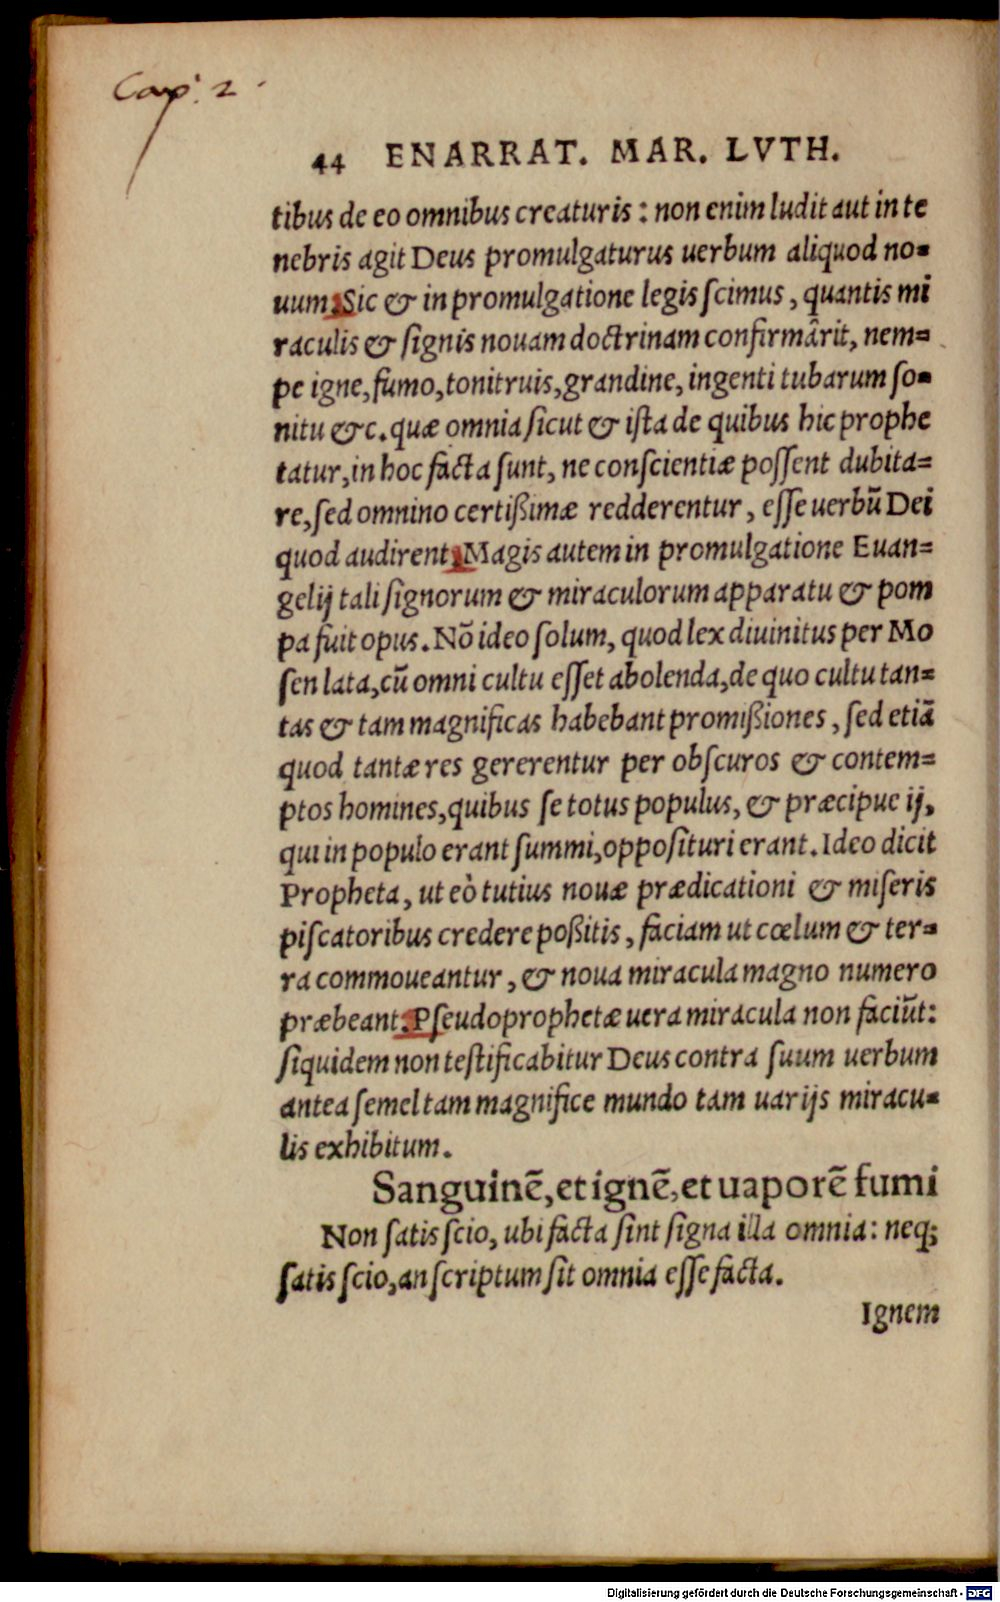 Cap. 2.
44 ENARRAT. MAR. LVTH.
tibus de eo omnibus creaturis : non enim ludit aut in te
nebris agit Deus promulgaturus uerbum aliquod no=
uum. Sic & in promulgatione legis scimus, quantis mi
raculis & signis nouam doctrinam confirmârit, nem=
pe igne, fumo, tonitruis, grandine, ingenti tubarum so=
nitu &c. quæ omnia sicut & ista de quibus hic prophe
tatur, in hoc facta sunt, ne conscientiæ possent dubita=
re, sed omnino certißimæ redderentur, esse uerbũ Dei
quod audirent. Magis autem in promulgatione Euan=
gelij tali signorum & miraculorum apparatu & pom
pa fuit opus. Nõ ideo solum, quod lex diuinitus per Mo
sen lata, cũ omni cultu esset abolenda, de quo cultu tan=
tas & tam magnificas habebant promißiones, sed etiã
quod tantæ res gererentur per obscuros & contem=
ptos homines, quibus se totus populus, & præcipue ij,
qui in populo erant summi, opposituri erant. Ideo dicit
Propheta, ut eò tutius nouæ prædicationi & miseris
piscatoribus credere poßitis, faciam ut cœlum & ter=
ra commoueantur, & noua miracula magno numero
præbeant. Pseudoprophetæ uera miracula non faciũt:
siquidem non testificabitur Deus contra suum uerbum
antea semel tam magnifice mundo tam uarijs miracu=
lis exhibitum.
Sanguinẽ, et ignẽ, et uaporẽ fumi
Non satis scio, ubi facta sint signa illa omnia: neq;
satis scio, an scriptum sit omnia esse facta.
Ignem
Digitalisierung gefördert durch die Deutsche Forschungsgemeinschaft - DFG